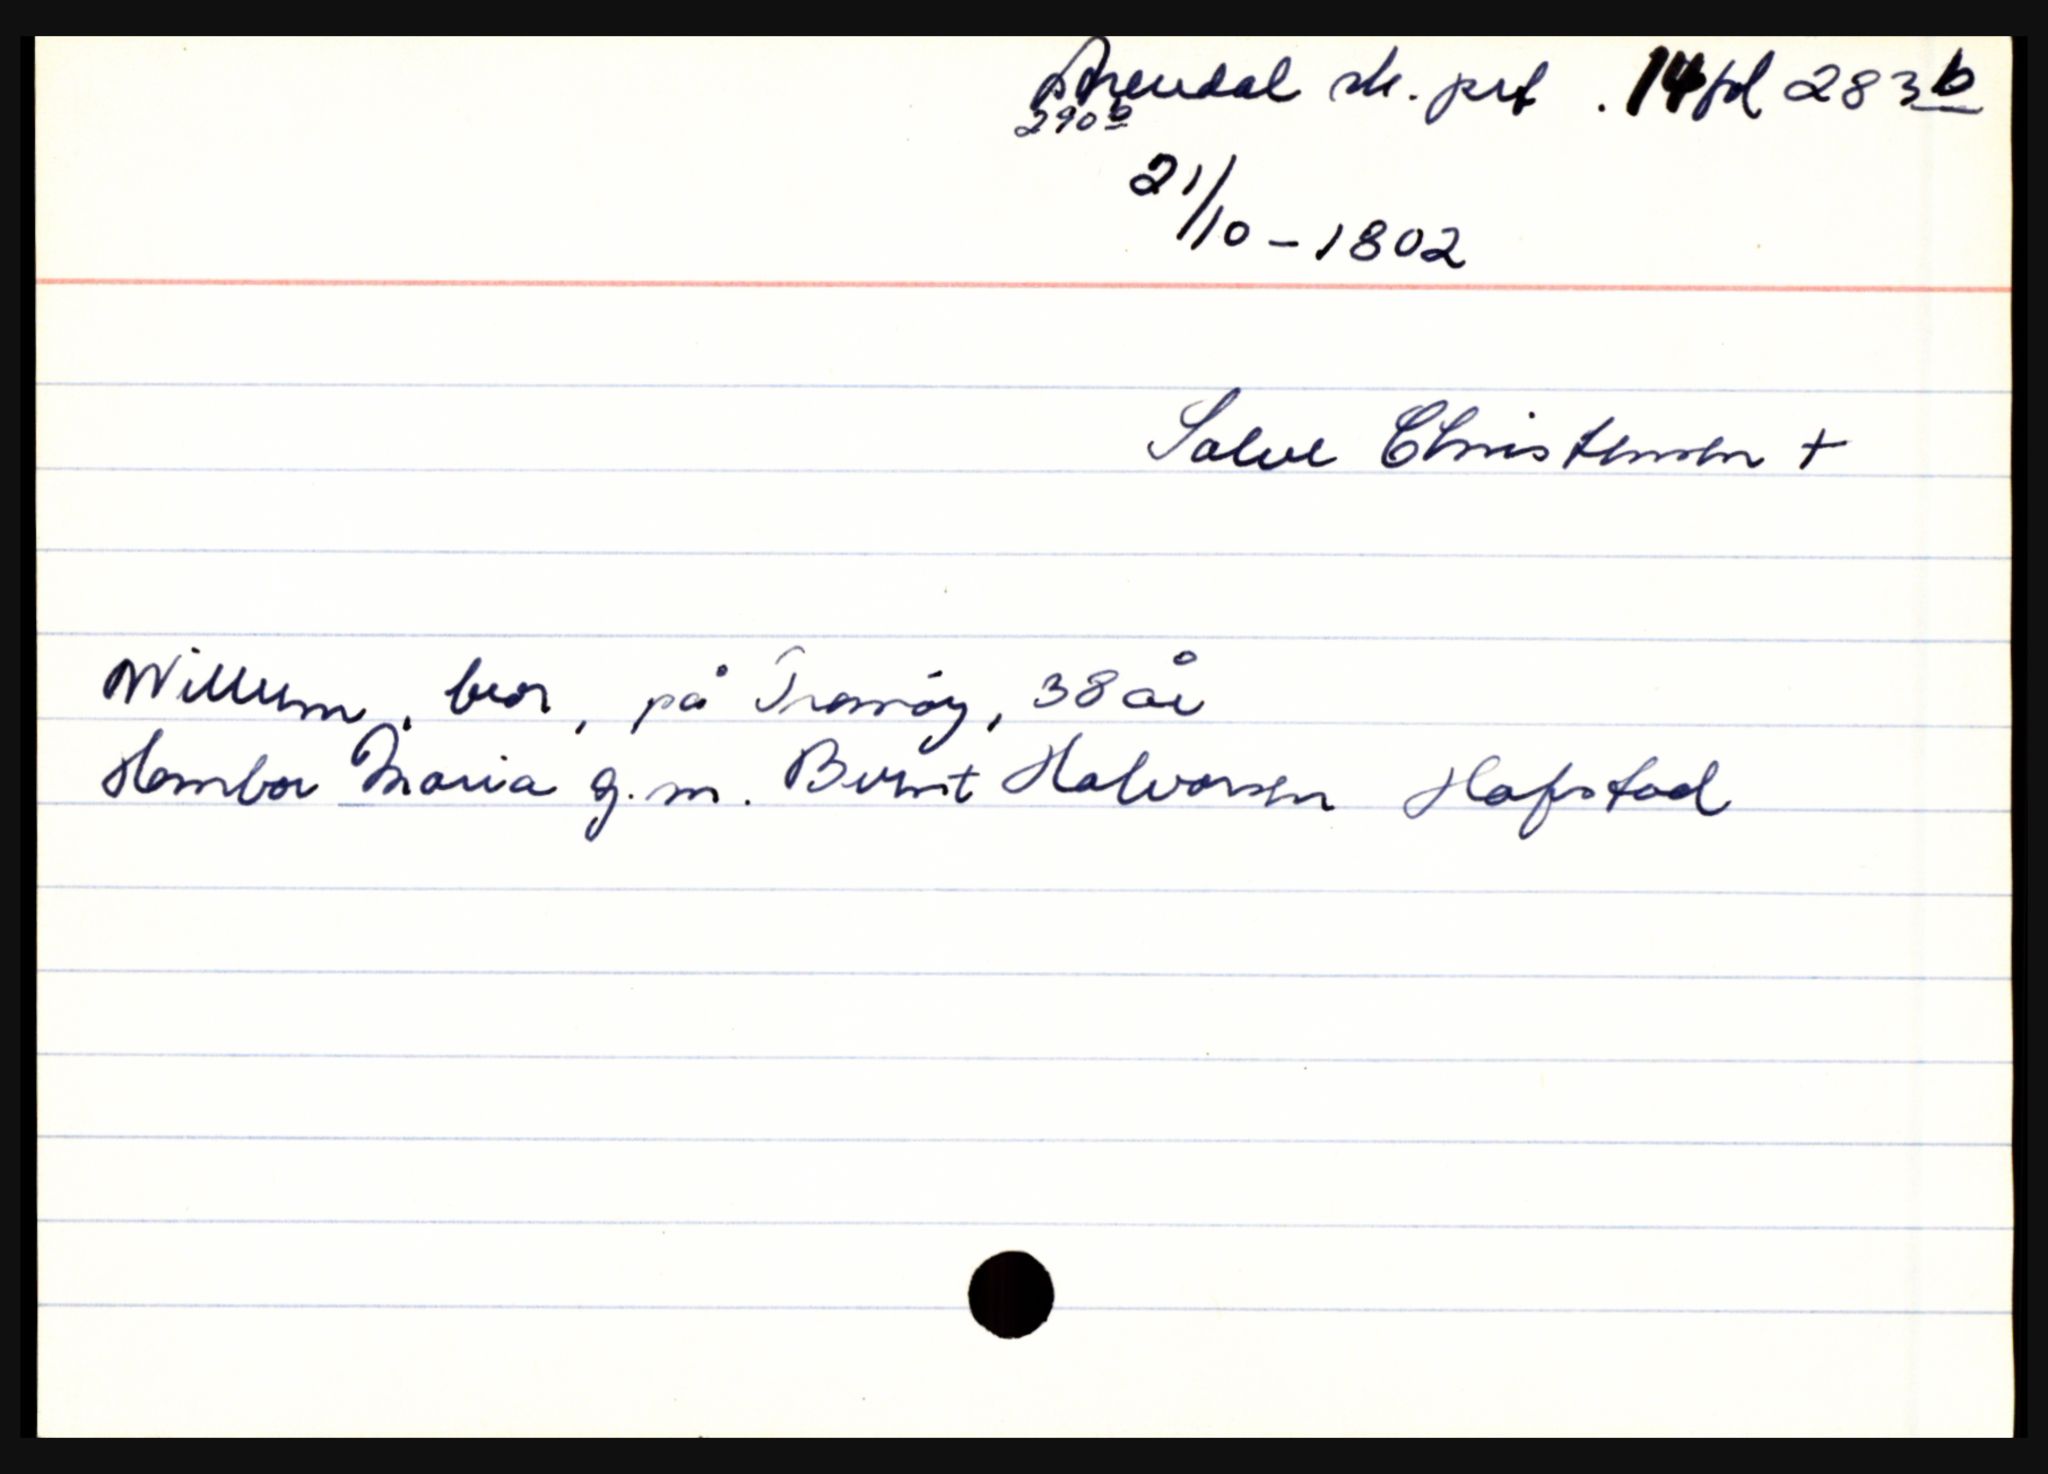 Arendal sk. prt. 14 fol 283b
290b
21/10-1802
Salve Christensen +
Willum, bor, på Tromöy, 38 år
Hombor Maria g.m. Bernt Halvorsen Hafstad